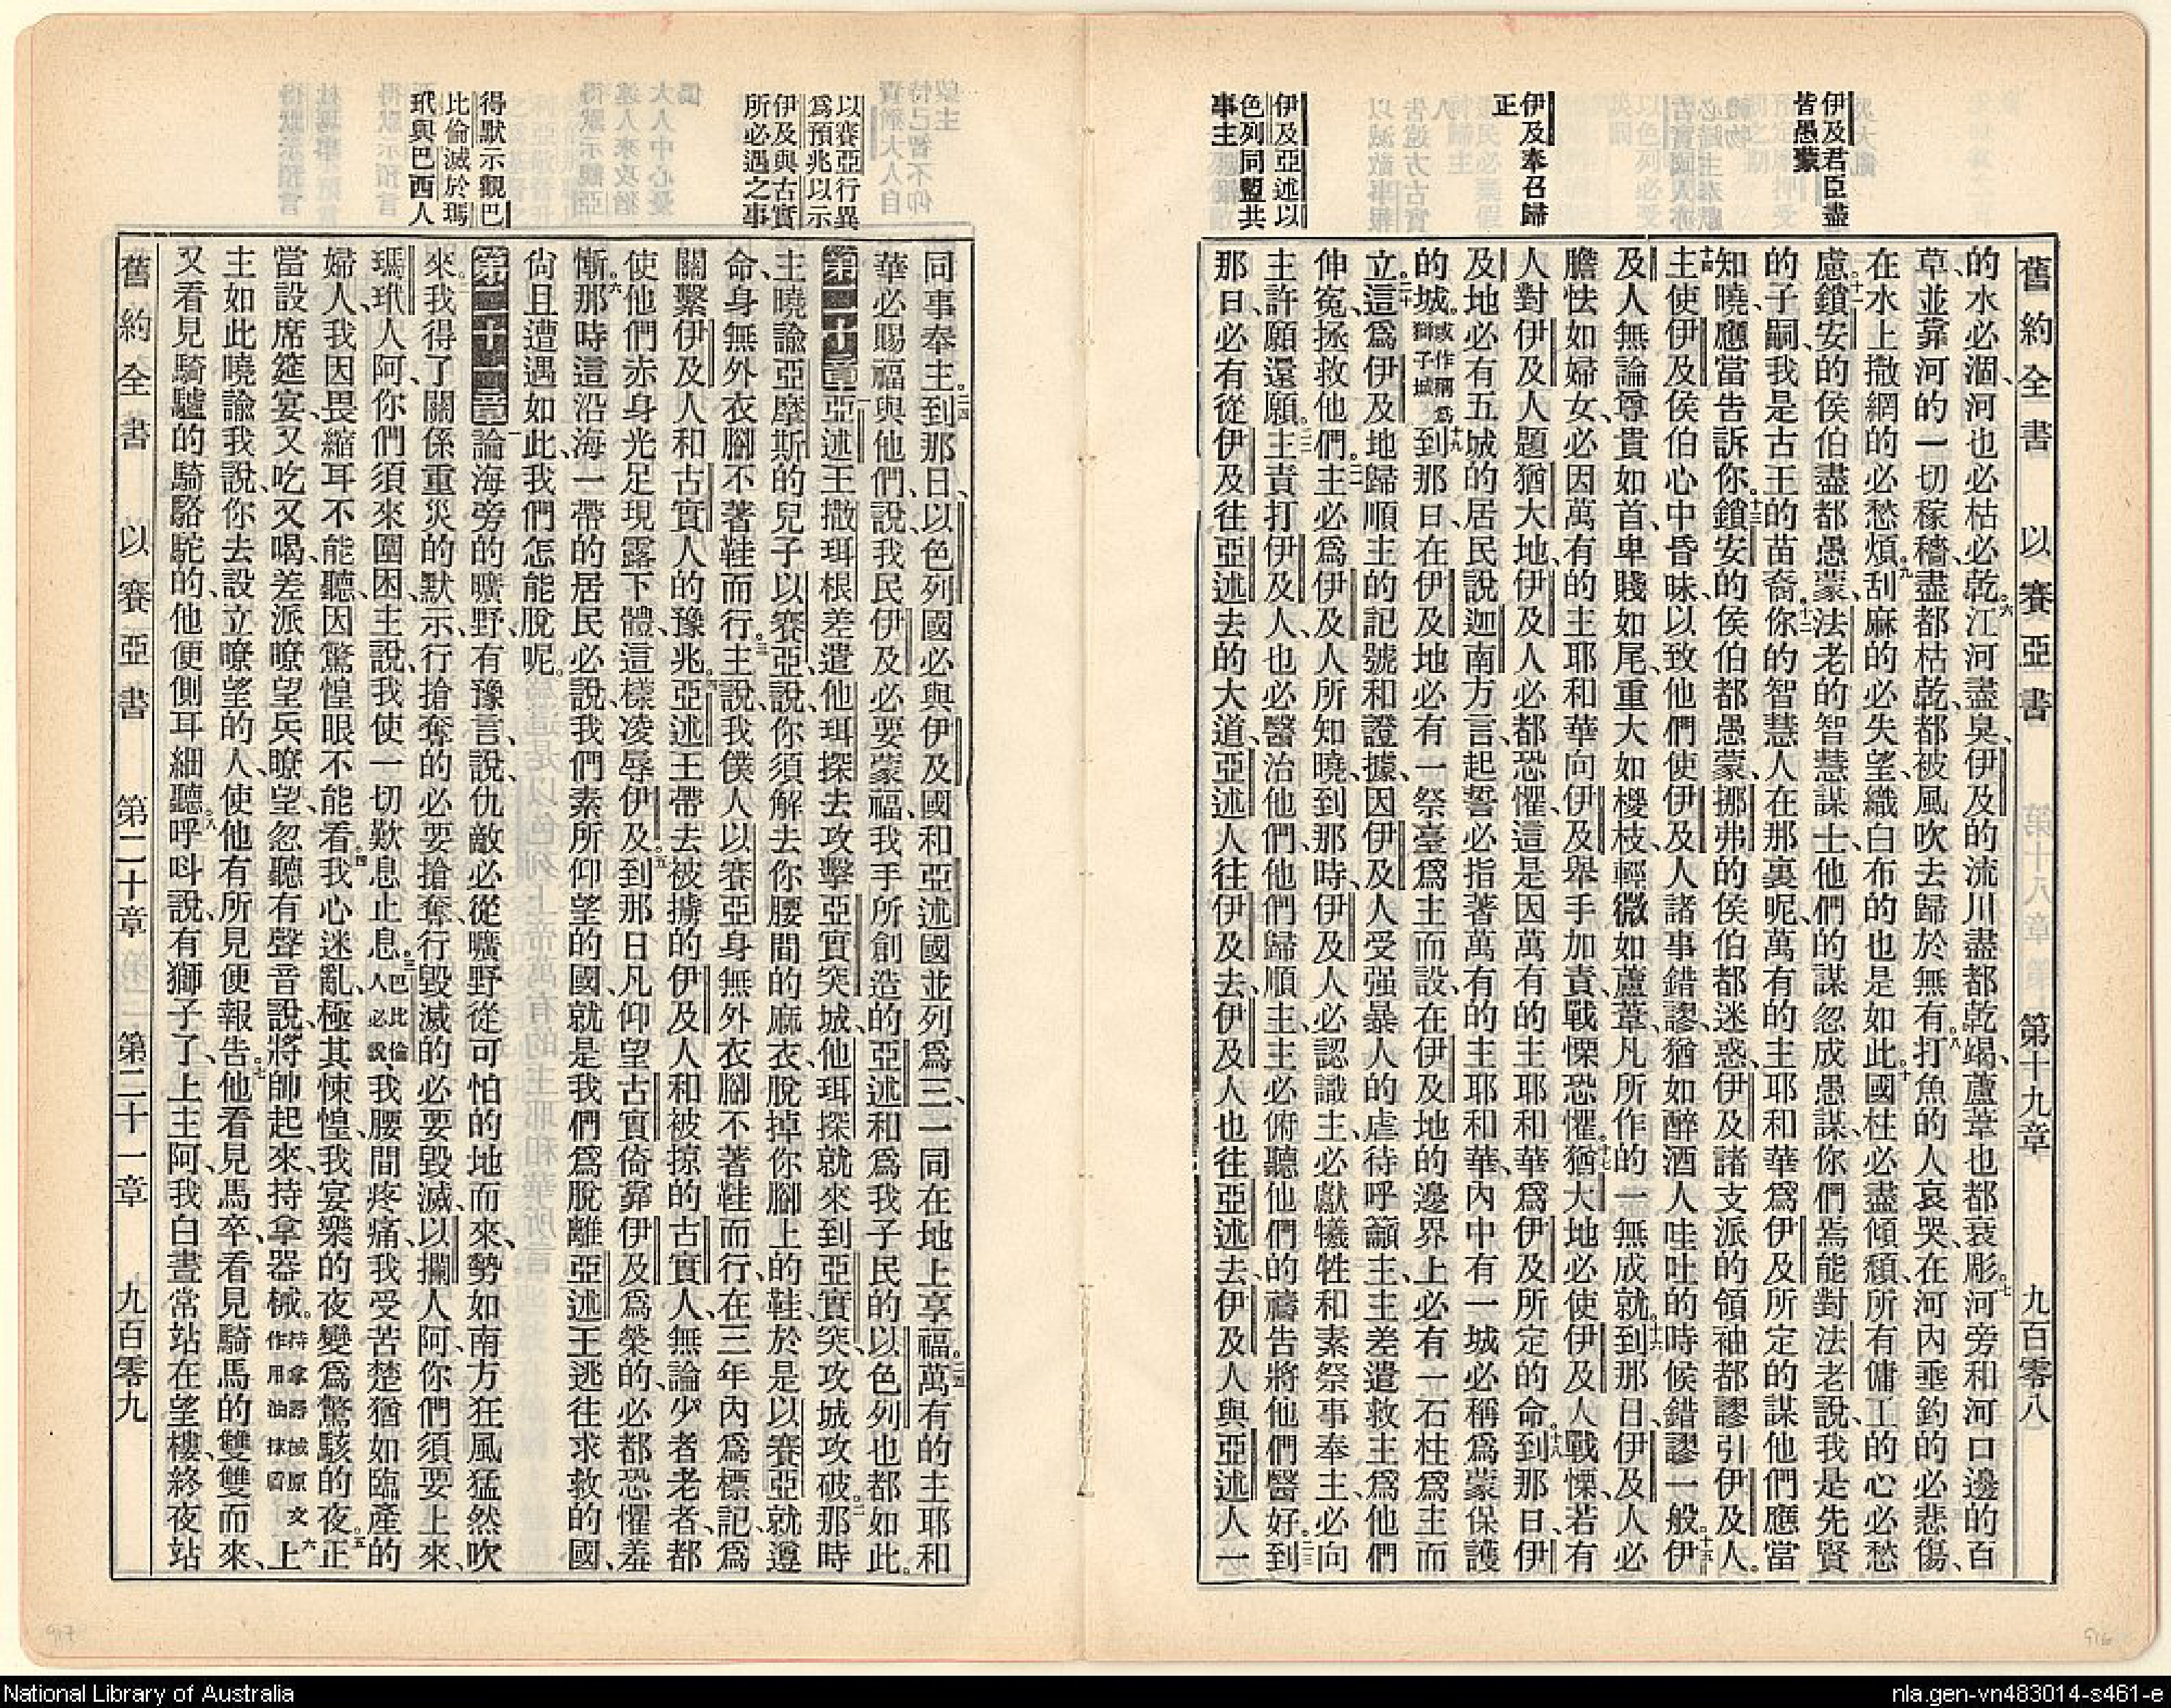 舊約全書 以賽亞書 第十九章 九百零八
伊及君臣盡
皆愚蒙
伊及奉召歸
正
伊及亞述以
色列同盟共
事主
的水必涸、河也必枯必乾、六江河盡臭、伊及的流川盡都乾竭、蘆葦也都衰彫。七河旁和河口邊的百
草、並靠河的一切稼穡、盡都枯乾、都被風吹去歸於無有。八打魚的人哀哭、在河內垂釣的必悲傷、
在水上撒網的必愁煩。九刮麻的必失望、織白布的也是如此。十國柱必盡傾頹、所有傭工的心必愁
慮。十一鎖安的侯伯盡都愚蒙、法老的智慧謀士、他們的謀忽成愚謀、你們焉能對法老說、我是先賢
的子嗣、我是古王的苗裔。十二你的智慧人在那裏呢、萬有的主耶和華爲伊及所定的謀、他們應當
知曉、應當告訴你。十三鎖安的侯伯都愚蒙、挪弗的侯伯都迷惑、伊及諸支派的領袖都謬引伊及人。
十四主使伊及侯伯心中昏昧、以致他們使伊及人諸事錯謬、猶如醉酒人哇吐的時候錯謬一般。十五伊
及人無論尊貴如首、卑賤如尾、重大如椶枝、輕微如蘆葦、凡所作的一無成就。十六到那日、伊及人必
膽怯如婦女、必因萬有的主耶和華向伊及舉手加責、戰慄恐懼。十七猶大地必使伊及人戰慄、若有
人對伊及人題猶大地、伊及人必都恐懼、這是因萬有的主耶和華爲伊及所定的命。十八到那日、伊
及地必有五城的居民說迦南方言、起誓必指著萬有的主耶和華、內中有一城必稱爲蒙保護
的城。或作稱爲獅子城十九到那日、在伊及地必有一祭臺爲主而設、在伊及地的邊界上必有一石柱爲主而
立。二十這爲伊及地歸順主的記號和證據、因伊及人受强暴人的虐待呼籲主、主差遣救主爲他們
伸冤、拯救他們。二一主必爲伊及人所知曉、到那時、伊及人必認識主、必獻犧牲和素祭事奉主、必向
主許願還願。二二主責打伊及人、也必醫治他們、他們歸順主、主必俯聽他們的禱告將他們醫好。二三到
那日、必有從伊及往亞述去的大道、亞述人往伊及去、伊及人也往亞述去、伊及人與亞述人一
以賽亞行異
爲預兆以示
伊及與古實
所必遇之事
得默示觀巴
比倫滅於瑪
玳與巴西人
同事奉主。二四到那日、以色列國必與伊及國和亞述國並列爲三、一同在地上享福。二五萬有的主耶和
華必賜福與他們、說、我民伊及必要蒙福、我手所創造的亞述和爲我子民的以色列也都如此。
第二十章一亞述王撒珥根差遣他珥探去攻擊亞實突城、他珥探就來到亞實突、攻城攻破。二那時
主曉諭亞摩斯的兒子以賽亞、說、你須解去你腰間的麻衣、脫掉你腳上的鞋、於是以賽亞就遵
命、身無外衣腳不著鞋而行。三主說、我僕人以賽亞身無外衣腳不著鞋而行、在三年內爲標記、爲
關繫伊及人和古實人的豫兆。四亞述王帶去被擄的伊及人和被掠的古實人、無論少者老者、都
使他們赤身光足現露下體、這樣凌辱伊及。五到那日凡仰望古實倚靠伊及爲榮的、必都恐懼羞
慚。六那時這沿海一帶的居民必說、我們素所仰望的國、就是我們爲脫離亞述王逃往求救的國、
尙且遭遇如此、我們怎能脫呢。
第二十一章一論海旁的曠野、有豫言、說、仇敵必從曠野從可怕的地而來、勢如南方狂風猛然吹
來。二我得了關係重災的默示、行搶奪的必要搶奪、行毀滅的必要毀滅、以攔人阿、你們須要上來、
瑪玳人阿、你們須來圍困、主說、我使一切歎息止息。三巴比倫人必說、我腰間疼痛、我受苦楚猶如臨產的
婦人、我因畏縮耳不能聽、因驚惶眼不能看。四我心迷亂、極其悚惶、我宴樂的夜變爲驚駭的夜。五正
當設席筵宴、又吃又喝、差派瞭望兵瞭望、忽聽有聲音說、將帥起來、持拿器械。持拿器械原文作用油抹盾六上
主如此曉諭我說、你去設立瞭望的人、使他有所見便報告。七他看見馬卒、看見騎馬的雙雙而來、
又看見騎驢的騎駱駝的、他便側耳細聽。八呼呌說、有獅子了、上主阿、我白晝常站在望樓、終夜站
舊約全書 以賽亞書 第二十章 第二十一章 九百零九
917
916
National Library of Australia
nla.gen-vn483014-s461-e